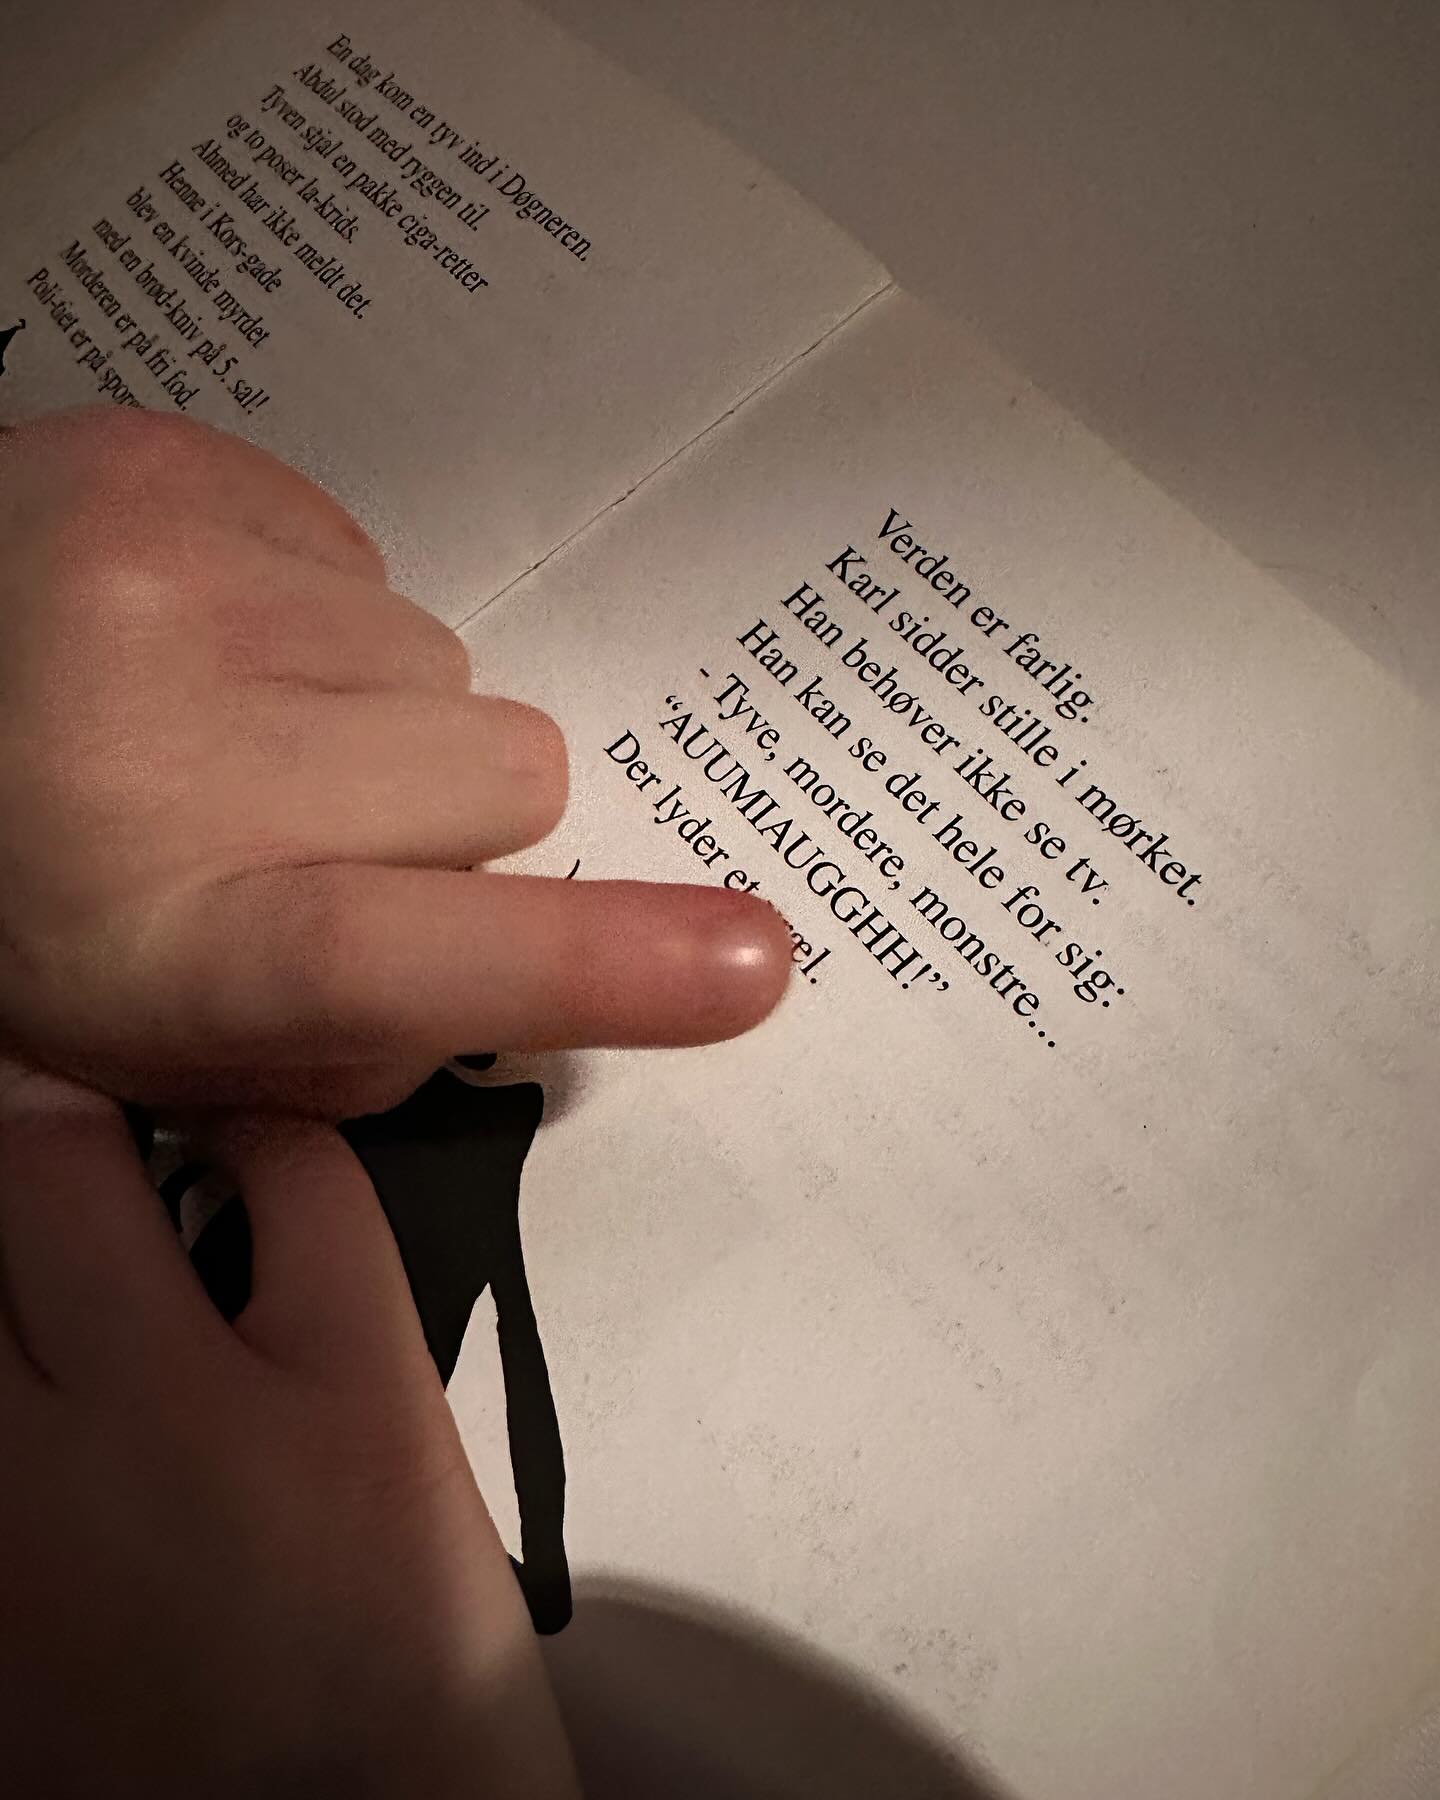 En dag kom en tyv ind i Døgneren.
Abdul stod med ryggen til.
Tyven stjal en pakke ciga-retter
og to poser la-krids.
Ahmed har ikke meldt det.
Henne i Kors-gade
blev en kvinde myrdet
med en brød-kniv på 5. sal!
Morderen er på fri fod.
Poli-tiet er på
Verden er farlig.
Karl sidder stille i mørket.
Han behøver ikke se tv.
Han kan se det hele for sig:
- Tyve, mordere, monstre...
“AUUMIAUGGHH!”
Der lyder et